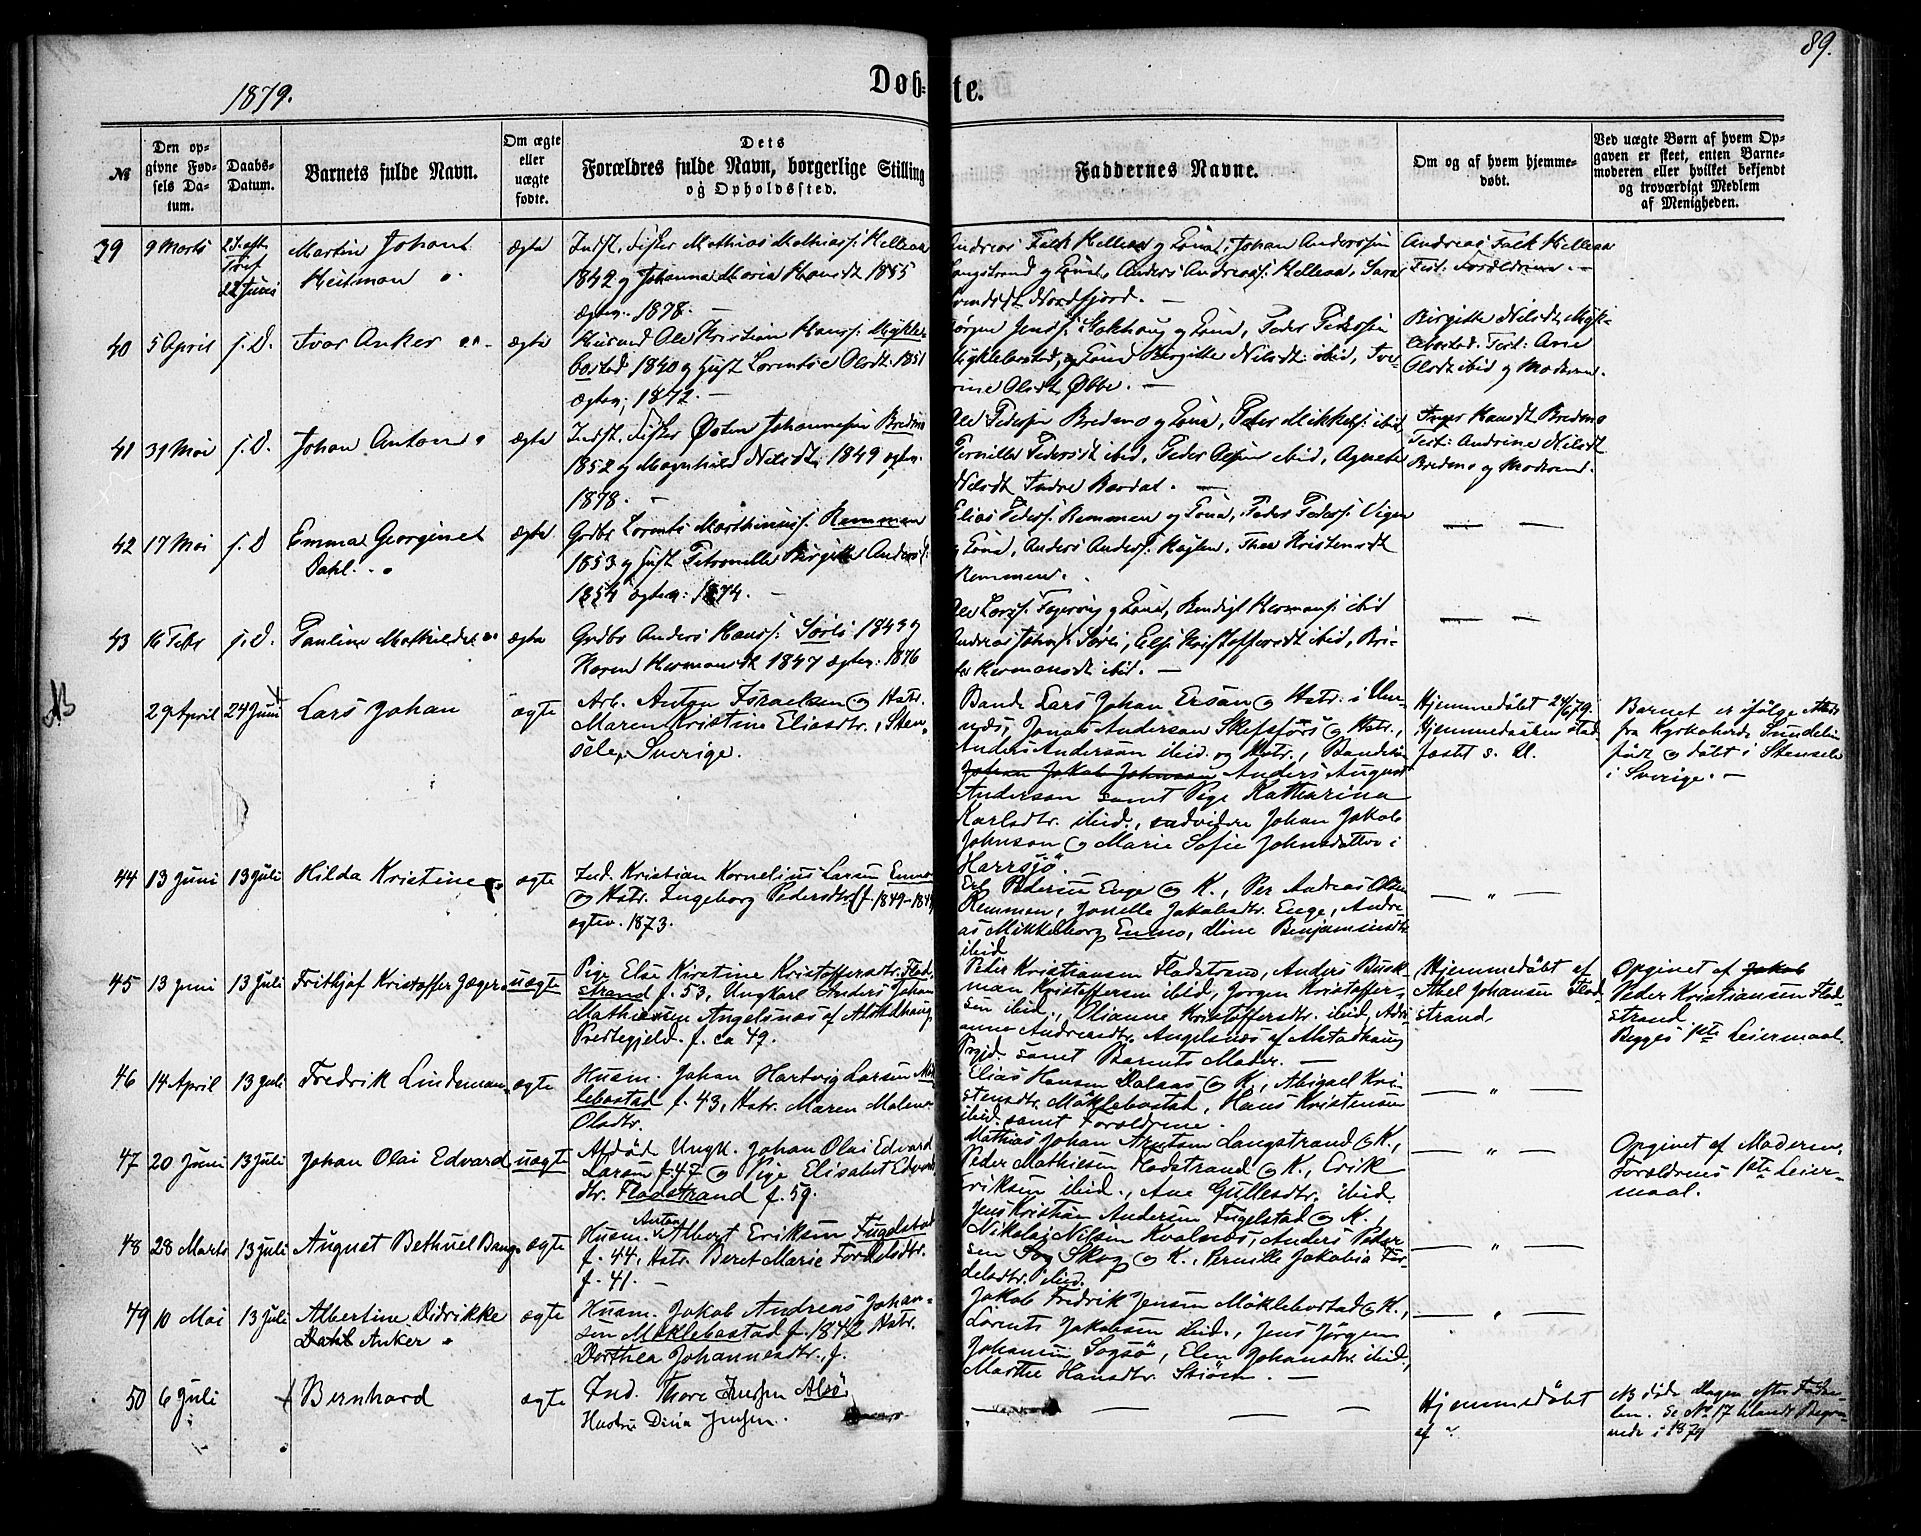 89.
1879.
Döbte.
№
Den opgivne Fødsels Datum.
Daabs-Datum.
Barnets fulde Navn.
Om ægte eller uægte fødte.
Dets Forældres fulde Navn, borgerlige Stilling og Opholdssted.
Faddernes Navne.
Om og af hvem hjemmedøbt.
Ved uægte Børn af hvem Opgaven er skeet, enten Barnemoderen eller hvilket bekjendt og troværdigt Medlem af Menigheden.
39 9 Marts 22 Juni
Martin Johan Heitman
ægte
Indst. Fisker Mathias Mathiass: Kelleaa
1842 og Johanna Maria Hansdt 1855
ægtev. 1878.
Andreas Falk Kelleaa og Kona, Johan Anderssen
Langstrand og Kona, Anders Andreass: Kelleaa, Sara
Nordfjord.
Andreas Falk Kelleaa
Test: Forældrene.
40 5 April s. D.
Ivar Anker
ægte
Husmd Ole Kristian Hanss: Mykle-
bostad 1840 og Hust Lorentse Olsdt: 1851
ægtev; 1872.
Jørgen Jenss: og Kona, Peder Pederssen
Myklebostad, og Kona Birgitte Nilsdt: ibid,
Olsdt Øbbe.
Birgitte Nilsdt, Myk-
lebostad. Test: Ane
Olsdt ibid og Moderen.
41 31 Mai s. D.
Johan Anton
ægte
Indst. Fisker Østen Johannessen Bredmo
1852 og Magnhild Nilsdt: 1849 ægtev.
1878.
Ole Pedersen Bredmo og Kona, Peder Mikkels: ibid,
Pernille Pedersdt ibid, Peder Olssen ibid, Agnete
Nilsdt Indre Bardal.
Inger Hansdt Bredmo
Test: Andrine Nilsdt
Bredmo og Moderen.
42 17 Mai s. D
Emma Georgine
Dahl.
ægte
Grdbr Lorents Marthinuss: Remmen
1853 og Hust Petronelle Birgitte Andersd:
1854 ægtev: 1874.
Elias Peders: Remmen og Kona, Peder Peders: Vigen
og Kona, Anders Anders: Thea Kristensdt
Remmen.
43 16 Febr s. D.
Pauline Mathilde
ægte
Grdbr Anders Hanss: Sørli 1842 og
Karen Hermansdt 1847 ægtev: 1876
Ole Larss: og Kona, Bendigt Hermans: ibid
Andreas Johans: Sørli, Else Kristoffersdt ibid,
Hermansdt ibid.
NB
29 April 24 Juni
Lars Johan
ægte
Arb. Anton Israelsen og Hstr.
Maren Kristine Eliasdtr., Sten-
sele, Sverige.
Bonde Lars Johan Ersson og Hstr. i Um-
næs, Jonas Anderson Skefsfors og Hstr.,
Anders Anderson ibid. og Hstr., Bonden
Johan Jakob Johnson Anders August
Anderson samt Pige Katharina
Karlsdtr. ibid., endvidere Johan Jakob
Johnson og Marie Sofie Johnsdatter i
Harrsjö.
Hjemmedøbt 24/6 79.
Hjemmedaaben stad-
fæstet s. D.
Barnet er ifølge Attest
fra Kyrkoherde Sundelin
født og døbt i Stensele
i Sverige.
44 13 Juni 13 Juli
Hilda Kristine
ægte
Ind. Kristian Kornelius Larsen Enmo
og Hstr. Ingeborg Pedersdtr. f. 1849–1849
ægtev. 1873.
Pedersen Enge og K., Per Andreas Olsen
Remmen, Jonelle Jakobsdtr. Enge, Andre-
as Mikkelborg Enmo, Oline Benjaminsdtr.
ibid
45 13 Juni 13 Juli
Frithjof Kristoffer Jæger
uægte
Pige Else Kirstine Kristoffersdtr. Flad-
strand f. 53, Ungkarl Anders Johan
Mathiesen Angelsnæs af Alstadhaug
Prestegjeld. f. ca 49.
Peder Kristiansen Fladstrand, Anders Buck-
man Kristoffersen ibid, Jørgen Kristoffer-
sen ibid., Olianne Kristoffersdtr. ibid, Adri-
anne Andreasdtr. Angelsnæs af Alstadhaug
Prgjd. samt Barnets Moder.
Hjemmedøbt af
Abel Johansen Flad-
strand.
Opgivet af Jakob
Peder Kristiansen Flad-
strand
Begges 1ste Leiermaal.
46 14 April 13 Juli
Fredrik Lindeman
ægte
Husm. Johan Hartvig Larsen Møk-
lebostad f. 43, Hstr. Maren Malene
Olsdtr.
Elias Hansen Dalaas og K., Abigael Kri-
stensdtr. Møklebostad, Hans Kristensen
ibid. samt Forældrene.
47 20 Juni 13 Juli
Johan Olai Edvard
uægte
Afdød Ungk. Johan Olai Edvard
Larsen f. 47 og Pige Elisabet Edvards-
dtr. Fladstrand f. 59.
Mathias Johan Arntsen Langstrand og K.,
Peder Mathiesen Fladstrand og K., Erik
Eriksen ibid., Ane Gullesdtr. ibid.
Opgivet af Moderen,
Forældrenes 1ste Leier-
maal.
48 28 Marts 13 Juli
August Bethuel Bang
ægte
Husm. Anton Albert Eriksen Fugelstad
f. 44, Hstr. Beret Marie Fordelsdtr.
f. 41.
Jens Kristian Andersen Fugelstad og K.,
Nikolai Nilsen Kvalnæs, Anders Peder-
sen Skog og K., Pernille Jakobia For-
delsdtr. ibid.
49 10 Mai 13 Juli
Albertine Didrikke
Dahl Anker
ægte
Husm. Jakob Andreas Johan-
sen Møklebostad f. 1842 Hstr.
Dorthea Johannesdtr., f.
Jakob Fredrik Jensen Møklebostad og K.,
Lorents Jakobsen ibid., Jens Jørgen
Johansen Sogsö, Elen Johansdtr. ibid,
Marthe Hansdtr.
50 6 Juli
Bernhard
ægte
Ind. Thore Jensen Alsö
Hustru Dina Jensen.
Hjemmedøbt
af
NB døde Dagen efter Fødse-
len. Se No 17 blandt Begra-
vede i 1879